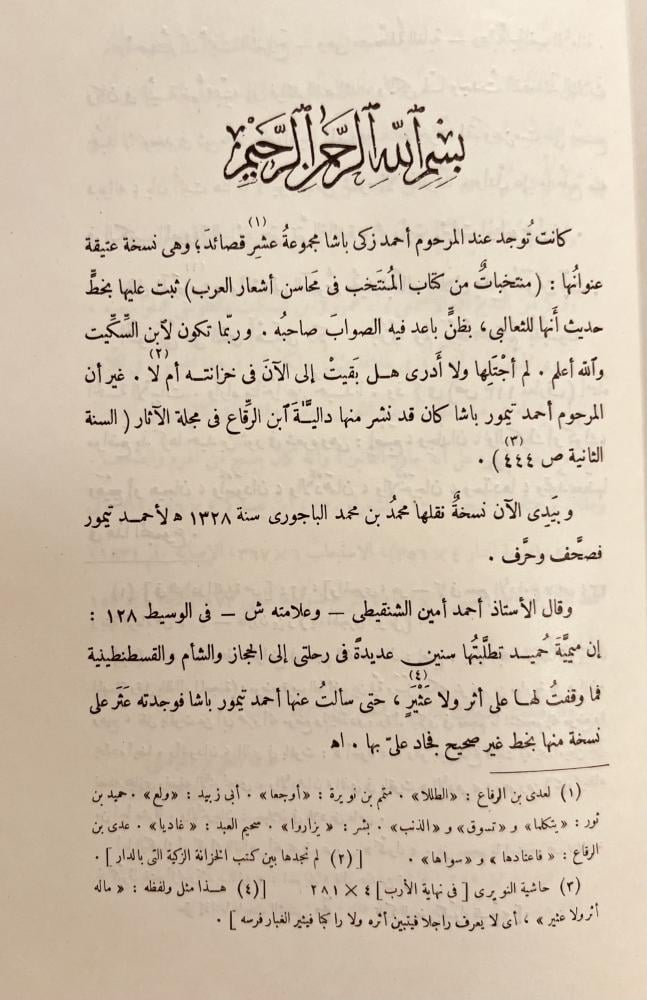 بسم الله الرحمن الرحيم
كانت تُوجد عند المرحوم أحمد زكى باشا مجموعةُ عشرِ (١) قصائدَ؛ وهى نسخة عتيقة
عنوانُها : (منتخباتٌ من كتاب المُنتَخب فى مَحاسن أشعار العرب) ثبت عليها بخطٍّ
حديث أنَّها للثعالبى، بظنٍّ باعد فيه الصوابَ صاحبُه . وربّما تكون لآبن السِّكِّيت
وٱلله أعلم . لم أَجْتَلِها ولا أَدرى هل بَقيتْ إلى الآنَ فى خزانته أم لا (٢) . غير أن
المرحوم أحمد تيمور باشا كان قد نشر منها داليَّةَ ٱبن الرِّقاع فى مجلة الآثار ( السنة
الثانية ص ٤٤٤ (٣) ) .
وبيَدِى الآن نسخةٌ نقلها محمدُ بن محمد الباجورى سنة ١٣٢٨ ھ لأحمد تيمور
فصحَّف وحرَّف .
وقال الأستاذ أحمد أمين الشنقيطى – وعلامته ش – فى الوسيط ١٢٨ :
إن ميميَّةَ حُميد تطلَّبتُها سنين عديدةً فى رحلتى إلى الحجاز والشأم والقسطنطينية
فما وقفتُ لها على أثر ولا عَثْيَرٍ (٤) ، حتى سألتُ عنها أحمد تيمور باشا فوجدته عَثَر على
نسخة منها بخط غير صحيح فجاد علىّ بها . اھ
(١) لعدى بن الرقاع : «الطللا» . متمم بن نويرة : «أوجعا» . أبى زبيد : «ولع» . حميد بن
ثور : «يتكلما» و «تسوق» و «الذنب» . بشر : «يزاروا» . سحيم العبد : «غاديا» . عدى بن
الرقاع : «فاعتادها» و «سواها» . [(٢) لم نجدها بين كتب الخزانة الزكية التى بالدار] .
(٣) حاشية النويرى [فى نهاية الأرب] ٤ × ٢٨١ [(٤) هذا مثل ولفظه : «ماله
أثر ولا عثير» ، أى لا يعرف راجلا فيتبين أثره ولا راكبا فيثير الغبار فرسه] .